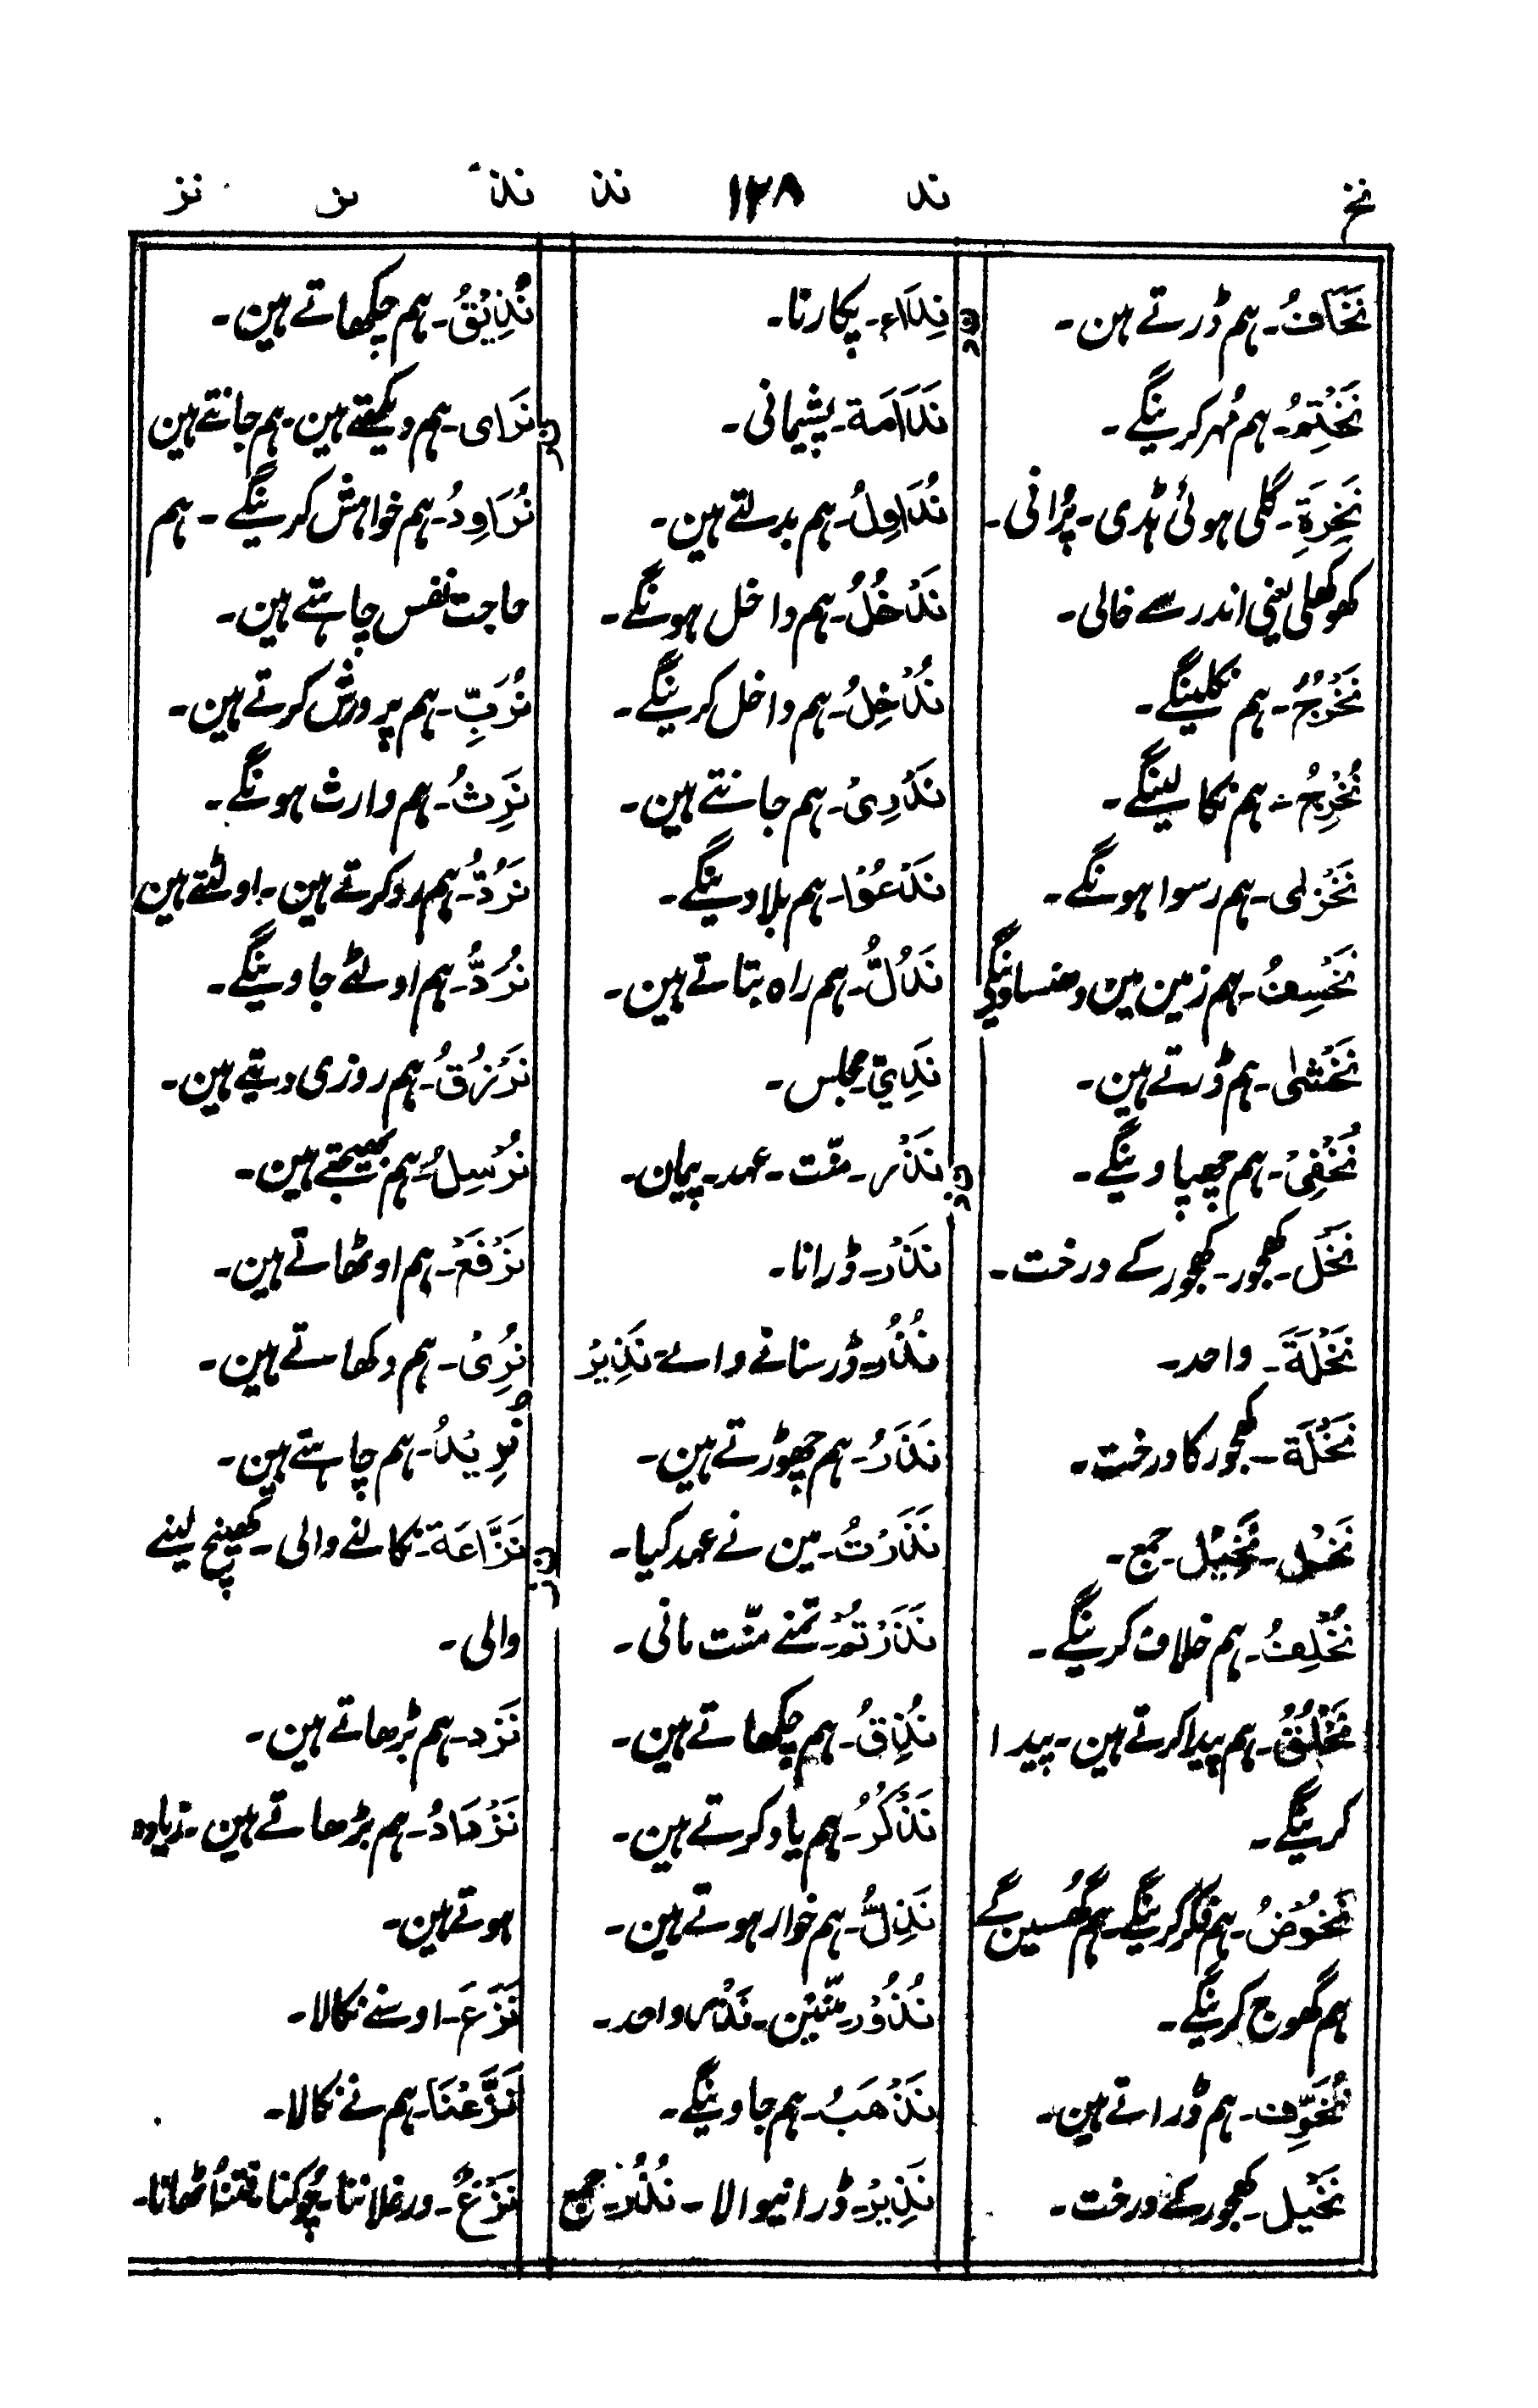 نخ ند ۱۲۸ نذ نذ نر نز
نَخَافُ۔ ہم ڈرتے ہن۔
نَخْتِمُ۔ ہم مُہر کرینگے۔
نَخِرَةِ۔ گلی ہوئی ہڈی۔ پُرانی۔
کھوکھلی یعنی اندر سے خالی۔
نَخْرُجُ۔ ہم نکلینگے۔
نُخْرِجُ۔ ہم نکالینگے۔
نَخْزٰی۔ ہم رسوا ہونگے۔
نَخْسِفُ۔ ہم زمین مین دھنساوینگے
نَخْشٰی۔ ہم ڈرتے ہین۔
نُخْفِیْ۔ ہم چھپاوینگے۔
نَخْل۔ کھجور۔ کھجور کے درخت۔
نَخْلَةَ۔ واحد۔
نَخْلَة۔ کھجور کا درخت۔
نَخْل۔ نَخِیْل۔ جمع۔
نُخْلِفُ۔ ہم خلاف کرینگے۔
نَخْلُقُ۔ ہم پیدا کرتے ہین۔ پیدا
کرینگے۔
نَخُوْضُ۔ ہم فکر کرینگے۔ ہم گھُسین گے
ہم کھوج کرینگے۔
نُخَوِّف۔ ہم ڈراتے ہین۔
نَخِیْل۔ کھجور کے درخت۔
ند
نِدَاء۔ پکارنا۔
نَدَامَة۔ پشیمانی۔
نُدَاوِلُ۔ ہم بدلتے ہین۔
نَدْخُلُ۔ ہم داخل ہونگے۔
نُدْخِلُ۔ ہم داخل کرینگے۔
نَدْرِیْ۔ ہم جانتے ہین۔
نَدْعُوْا۔ ہم بلاوینگے۔
نَدُلُّ۔ ہم راہ بتاتے ہین۔
نَدِيّ۔ مجلس۔
نذ
نَذْر۔ منّت۔ عہد۔ پیمان۔
نَذْر۔ ڈرانا۔
نُذُر۔ ڈر سنانے والے۔ نَذِیْرٌ
نَذَرُ۔ ہم چھوڑتے ہین۔
نَذَرْتُ۔ مین نے عہد کیا۔
نَذَرْتُمْ۔ تمنے منّت مانی۔
نُذِقُ۔ ہم چکھاتے ہین۔
نَذْكُرُ۔ ہم یاد کرتے ہین۔
نَذِلُّ۔ ہم خوار ہوتے ہین۔
نُذُوْر۔ منّتین۔ نَذْر واحد۔
نَذْهَبُ۔ ہم جاوینگے۔
نَذِیْرٌ۔ ڈرانیوالا۔ نُذُر۔ جمع
نُذِیْقُ۔ ہم چکھاتے ہین۔
نر
نَرَای۔ ہم دیکھتے ہین۔ ہم جانتے ہین
نُرَاوِدُ۔ ہم خواہش کرینگے۔ ہم
حاجت نفس چاہتے ہین۔
نُرَبِّ۔ ہم پرورش کرتے ہین۔
نَرِثُ۔ ہم وارث ہونگے۔
نَرُدُّ۔ ہم رد کرتے ہین۔ اولٹتے ہین
نُرَدُّ۔ ہم اولٹے جاوینگے۔
نَرْزُقُ۔ ہم روزی دیتے ہین۔
نُرْسِلُ۔ ہم بھیجتے ہین۔
نَرْفَعُ۔ ہم اوٹھاتے ہین۔
نُرِیْ۔ ہم دکھاتے ہین۔
نُرِیْدُ۔ ہم چاہتے ہین۔
نز
نَزَّاعَة۔ نکالنے والی۔ کھینچ لینے
والی۔
نَزِد۔ ہم بڑھاتے ہین۔
نَزْدَادُ۔ ہم بڑھاتے ہین۔ زیادہ
ہوتے ہین۔
نَزَعَ۔ اوسنے نکالا۔
نَزَعْنَا۔ ہم نے نکالا۔
نَزْغٌ۔ ورغلاننا۔ چوکنا۔ فتنہ اُٹھانا۔